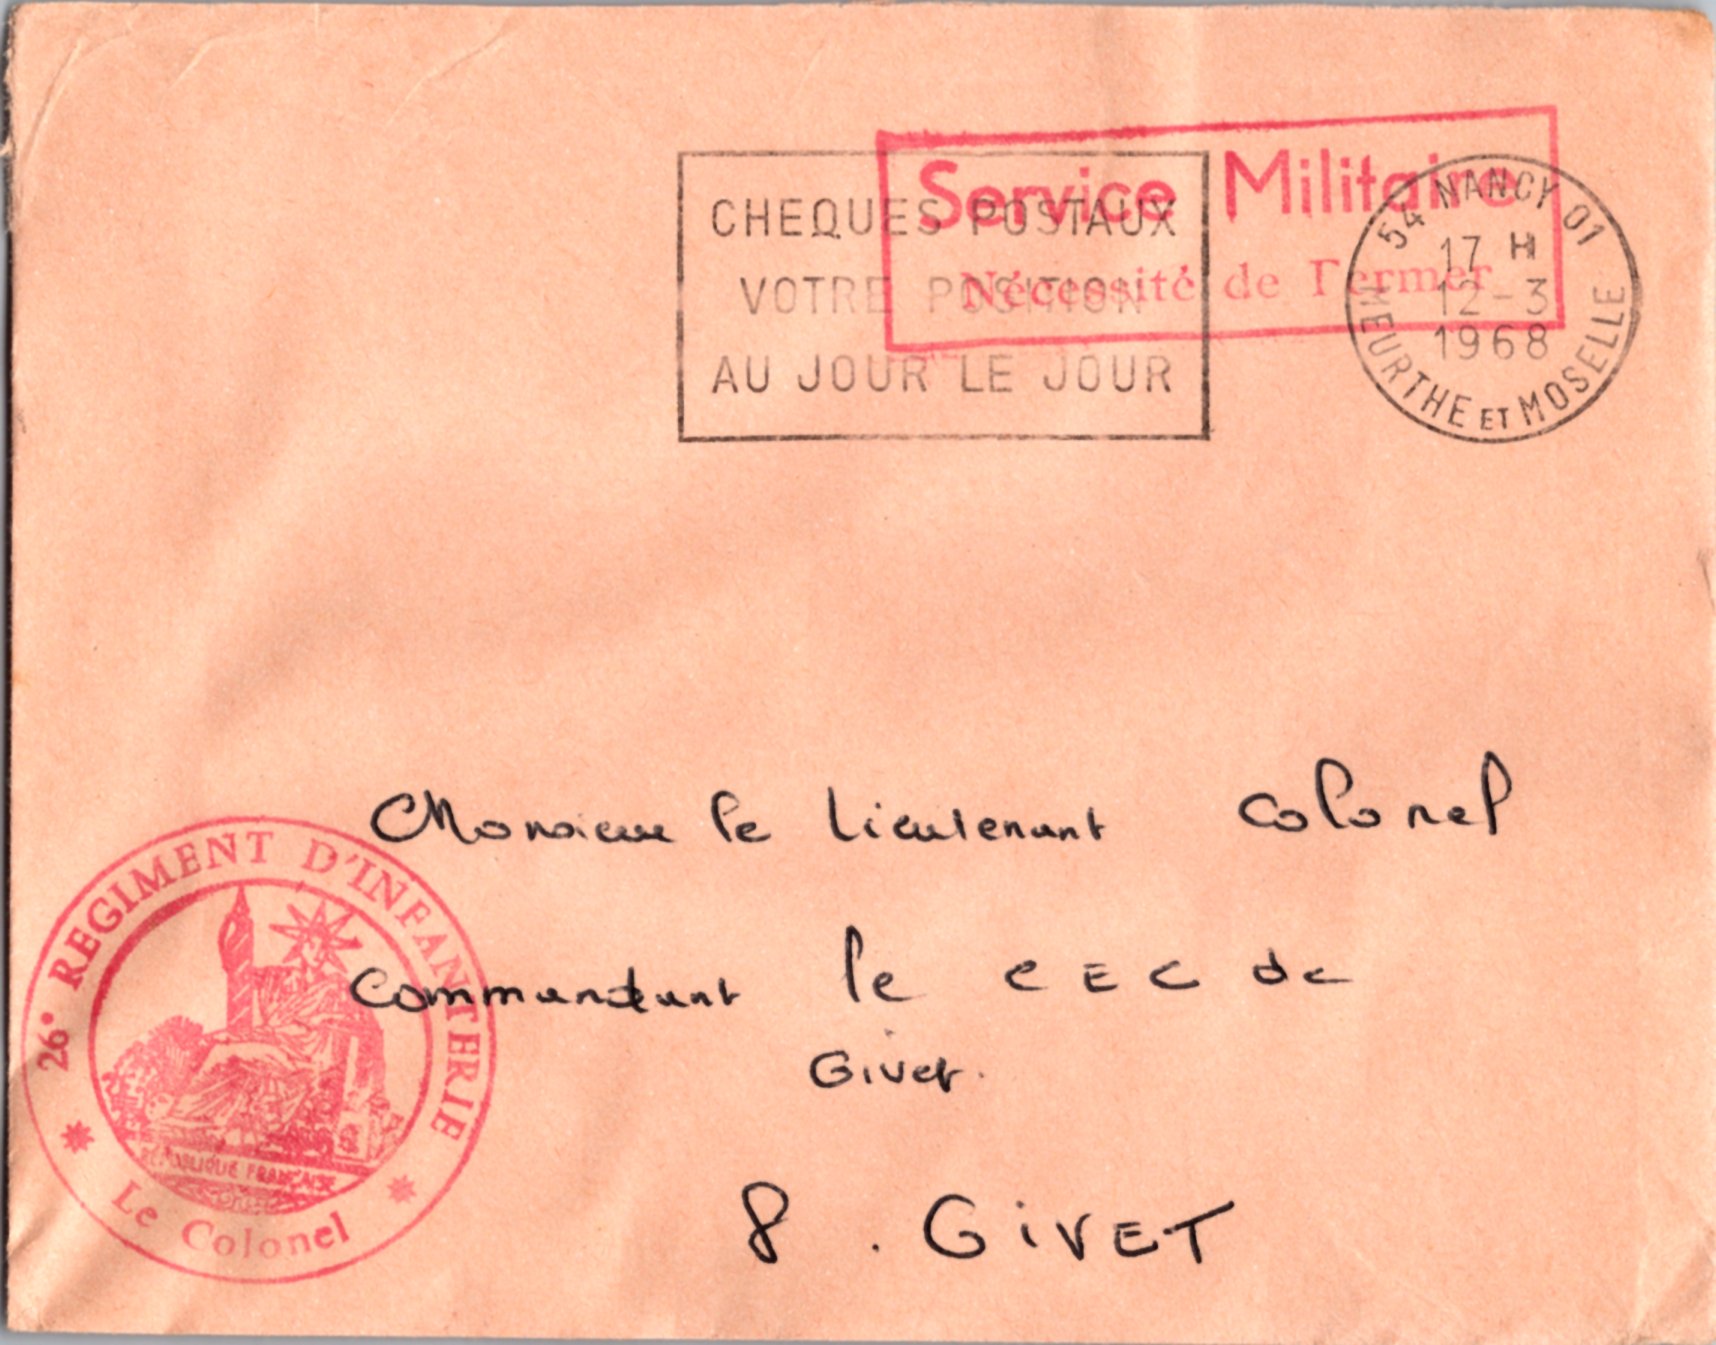 Service Militaire
Nécessité de Fermer
CHEQUES POSTAUX
VOTRE POSITION
AU JOUR LE JOUR
54 NANCY 01
17 H
12-3
1968
MEURTHE ET MOSELLE
Monsieur le Lieutenant Colonel
Commandant le CEC de
Givet.
8. GIVET
26e REGIMENT D'INFANTERIE
REPUBLIQUE FRANÇAISE
Le Colonel